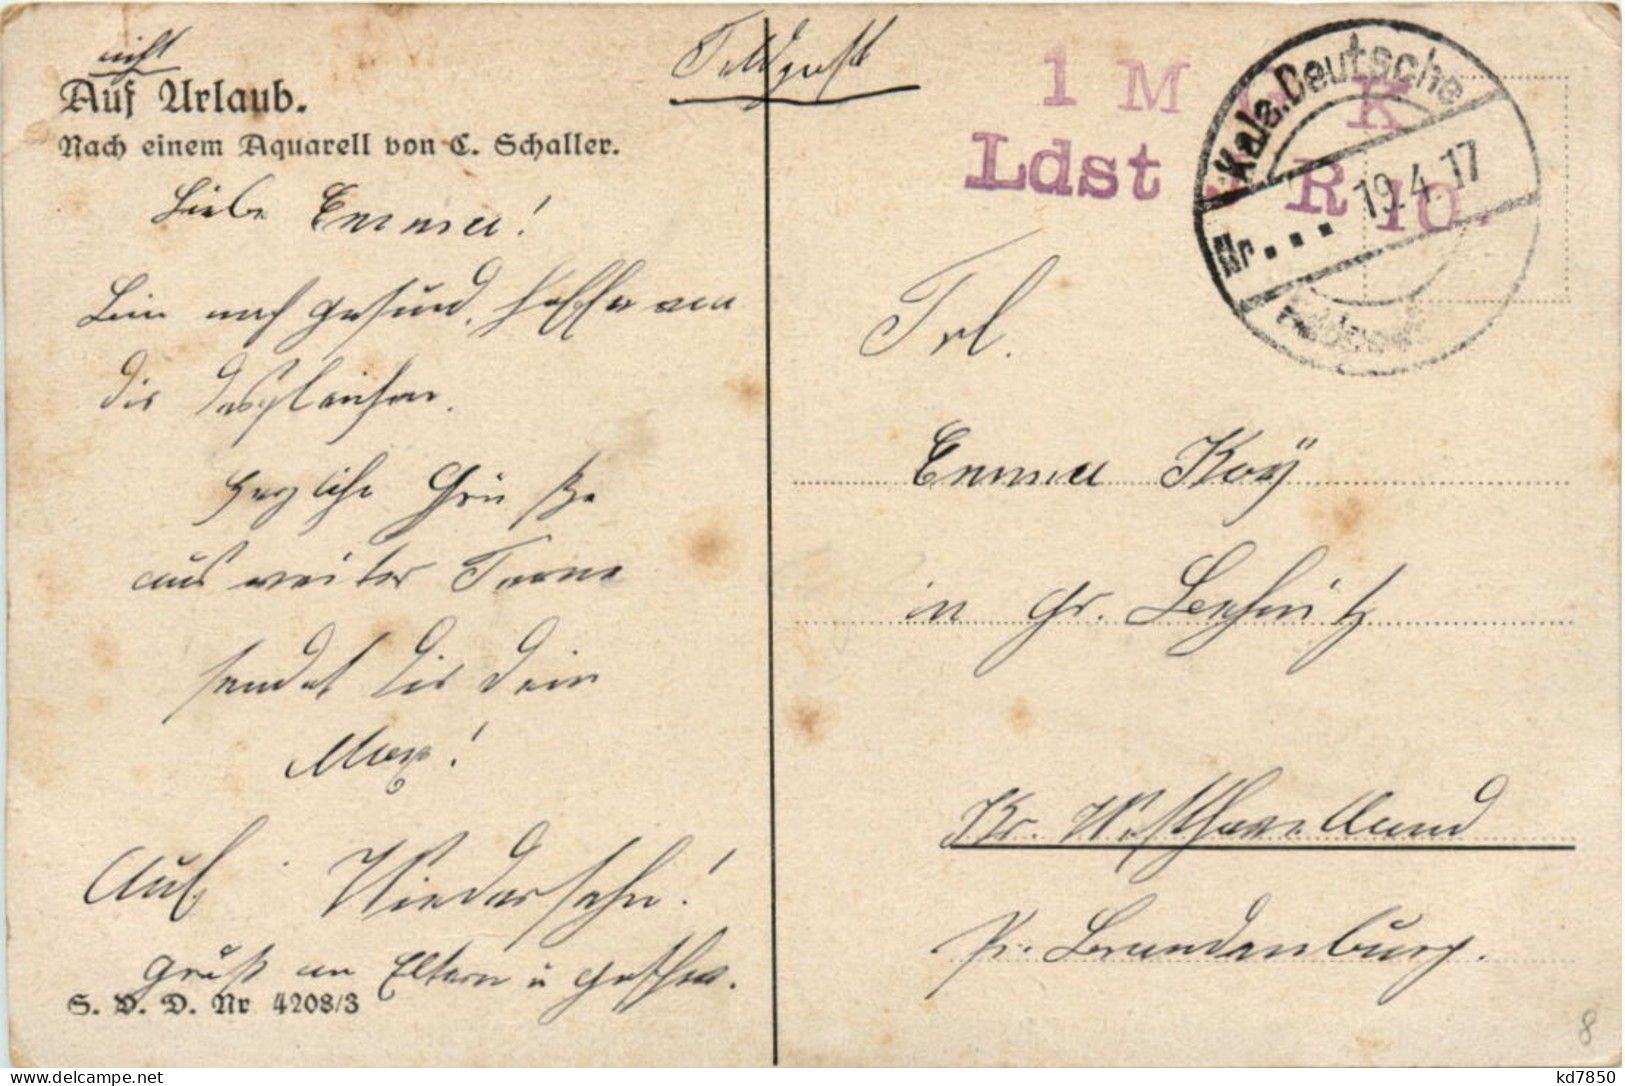 nicht
Auf Urlaub.
Nach einem Aquarell von C. Schaller.
Liebe Emma!
Bin noch gesund, hoffe von
dir desgleichen.
Herzliche Grüße
aus weiter Ferne
sendet dir Dein
Max!
Auf Wiedersehn!
Gruß an Eltern u
S. V. D. Nr 4208/3
Feldpost
1 M K
Ldst R 10.
Kais. Deutsche
Nr... 19.4.17
Feldpost
Frl.
Emma Koÿ
in Gr. Behnitz
Kr. Westhavelland
Pr. Brandenburg.
8
kd7850